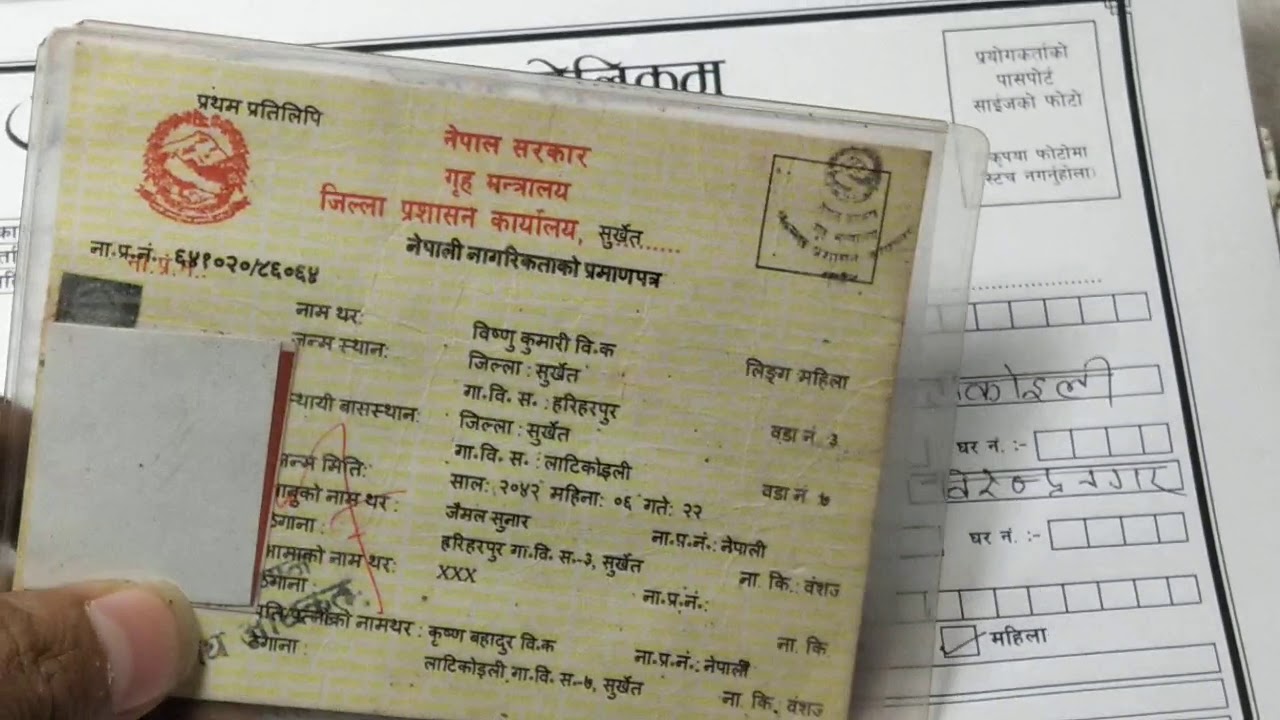 प्रथम प्रतिलिपि
नेपाल सरकार
गृह मन्त्रालय
जिल्ला प्रशासन कार्यालय, सुर्खेत......
नेपाली नागरिकताको प्रमाणपत्र
ना.प्र.नं. ६४१०२०/८६०६४
ना.प्र.नं.
नाम थर: विष्णु कुमारी वि.क लिङ्ग महिला
जन्म स्थान: जिल्ला : सुर्खेत
गा.वि. स. : हरिहरपुर वडा नं. ३
स्थायी बासस्थान: जिल्ला : सुर्खेत
गा.वि. स. : लाटिकोइली वडा नं ७
जन्म मिति: सालः २०४२ महिनाः ०६ गतेः २२
बाबुको नाम थर : जैमल सुनार ना.प्र.नं.: नेपाली
ठेगाना : हरिहरपुर गा.वि. स.-३, सुर्खेत ना. कि: वंशज
आमाको नाम थर: XXX ना.प्र.नं.:
ठेगाना : ना. कि
पति/पत्नीको नामथर : कृष्ण बहादुर वि.क ना.प्र.नं.: नेपाली
ठेगाना: लाटिकोइली गा.वि. स.-७, सुर्खेत ना. कि. वंशज
प्रयोगकर्ताको
पासपोर्ट
साइजको फोटो
कृपया फोटोमा
स्टिच नगर्नुहोला)
घर नं. :-
घर नं. :-
महिला